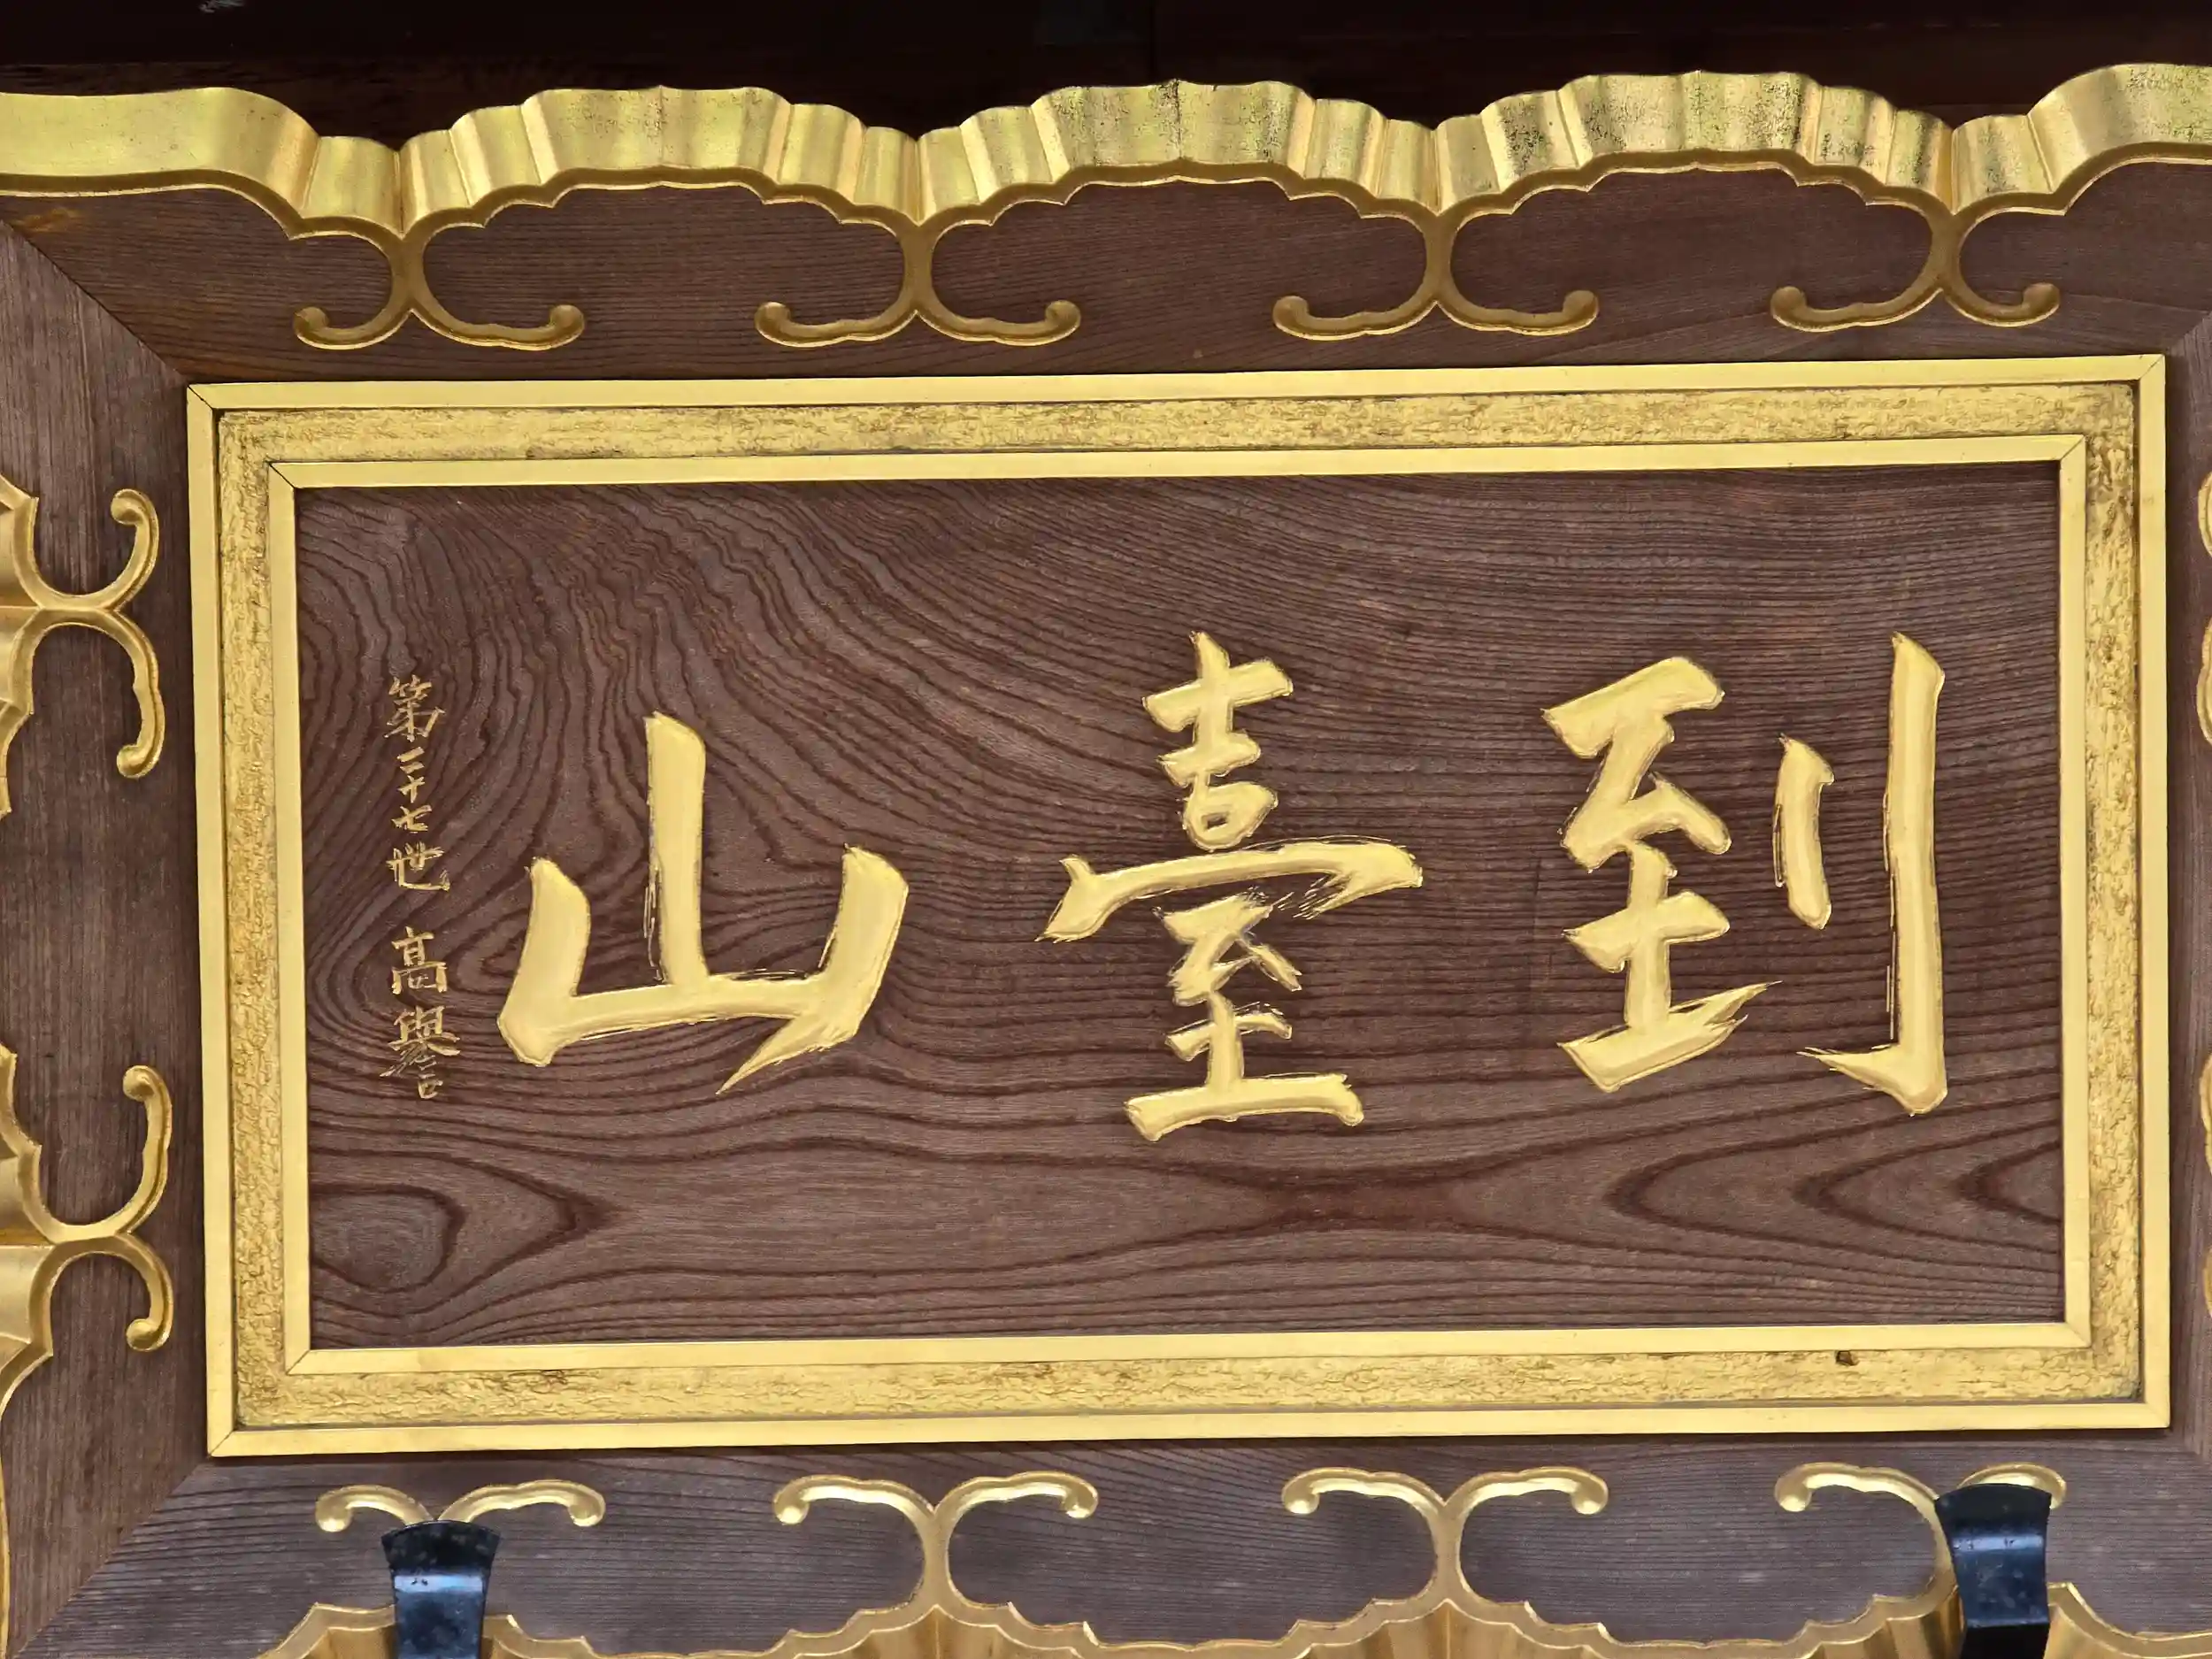 到臺山
第二十七世 高譽